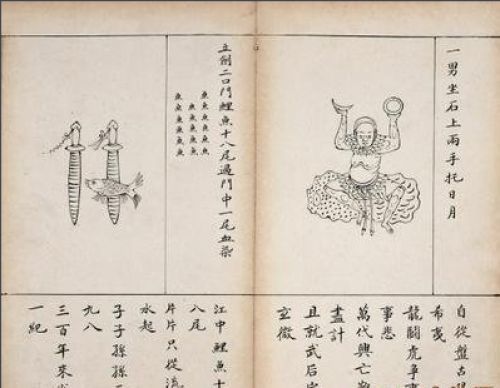 一男坐石上兩手托日月
自從盤古
希夷
龍鬪虎爭
事悲
萬代興亡
盡計
且就武后
玄微
立劍二口門鯉魚十八尾過門中一尾血染
魚魚魚魚魚魚
魚魚魚魚魚
魚魚魚魚魚魚
江中鯉魚十
八尾
片片只從流
水起
子子孫孫
九八
三百年來
一紀